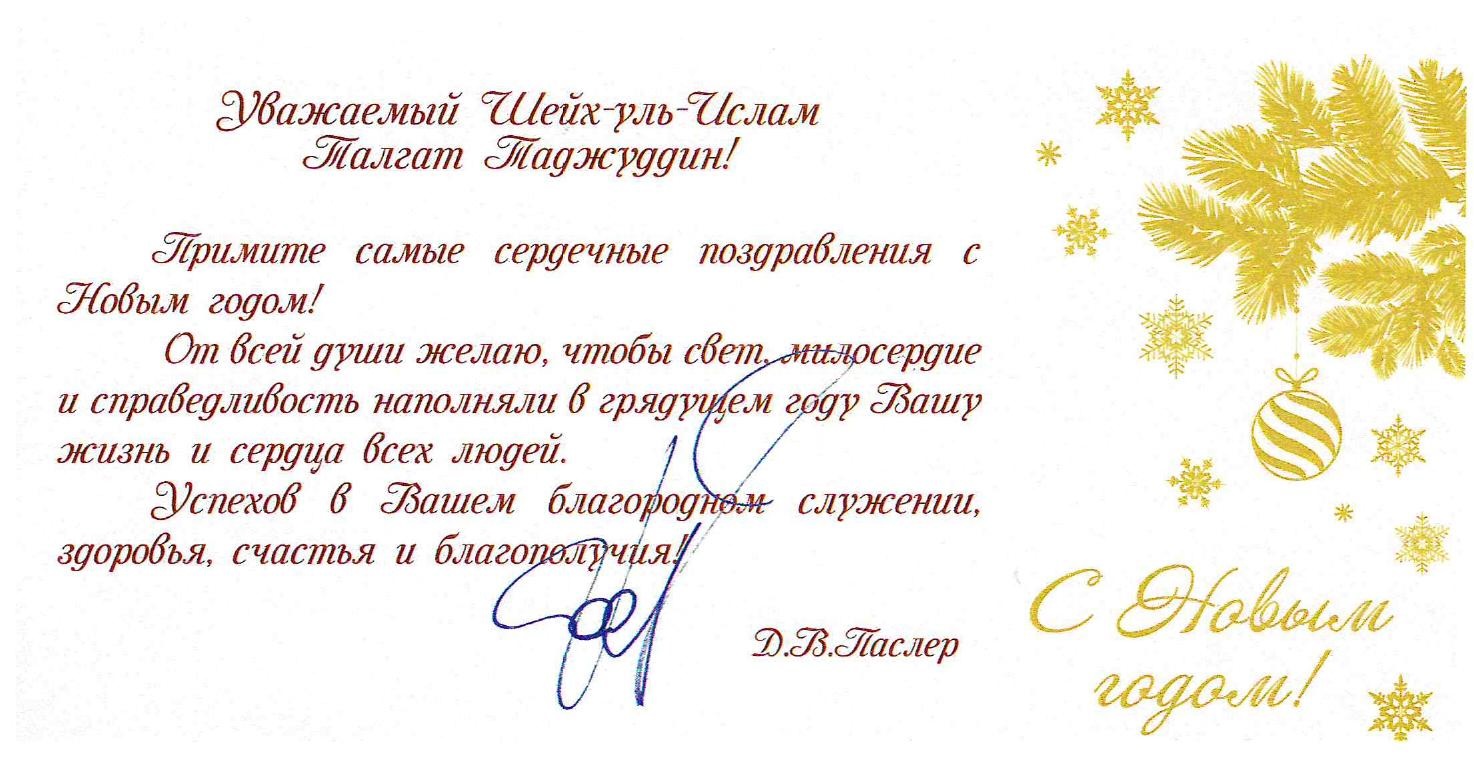 Уважаемый Шейх-уль-Ислам
Талгат Таджуддин!
Примите самые сердечные поздравления с
Новым годом!
От всей души желаю, чтобы свет, милосердие
и справедливость наполняли в грядущем году Вашу
жизнь и сердца всех людей.
Успехов в Вашем благородном служении,
здоровья, счастья и благополучия!
Д.В.Паслер
С Новым
годом!